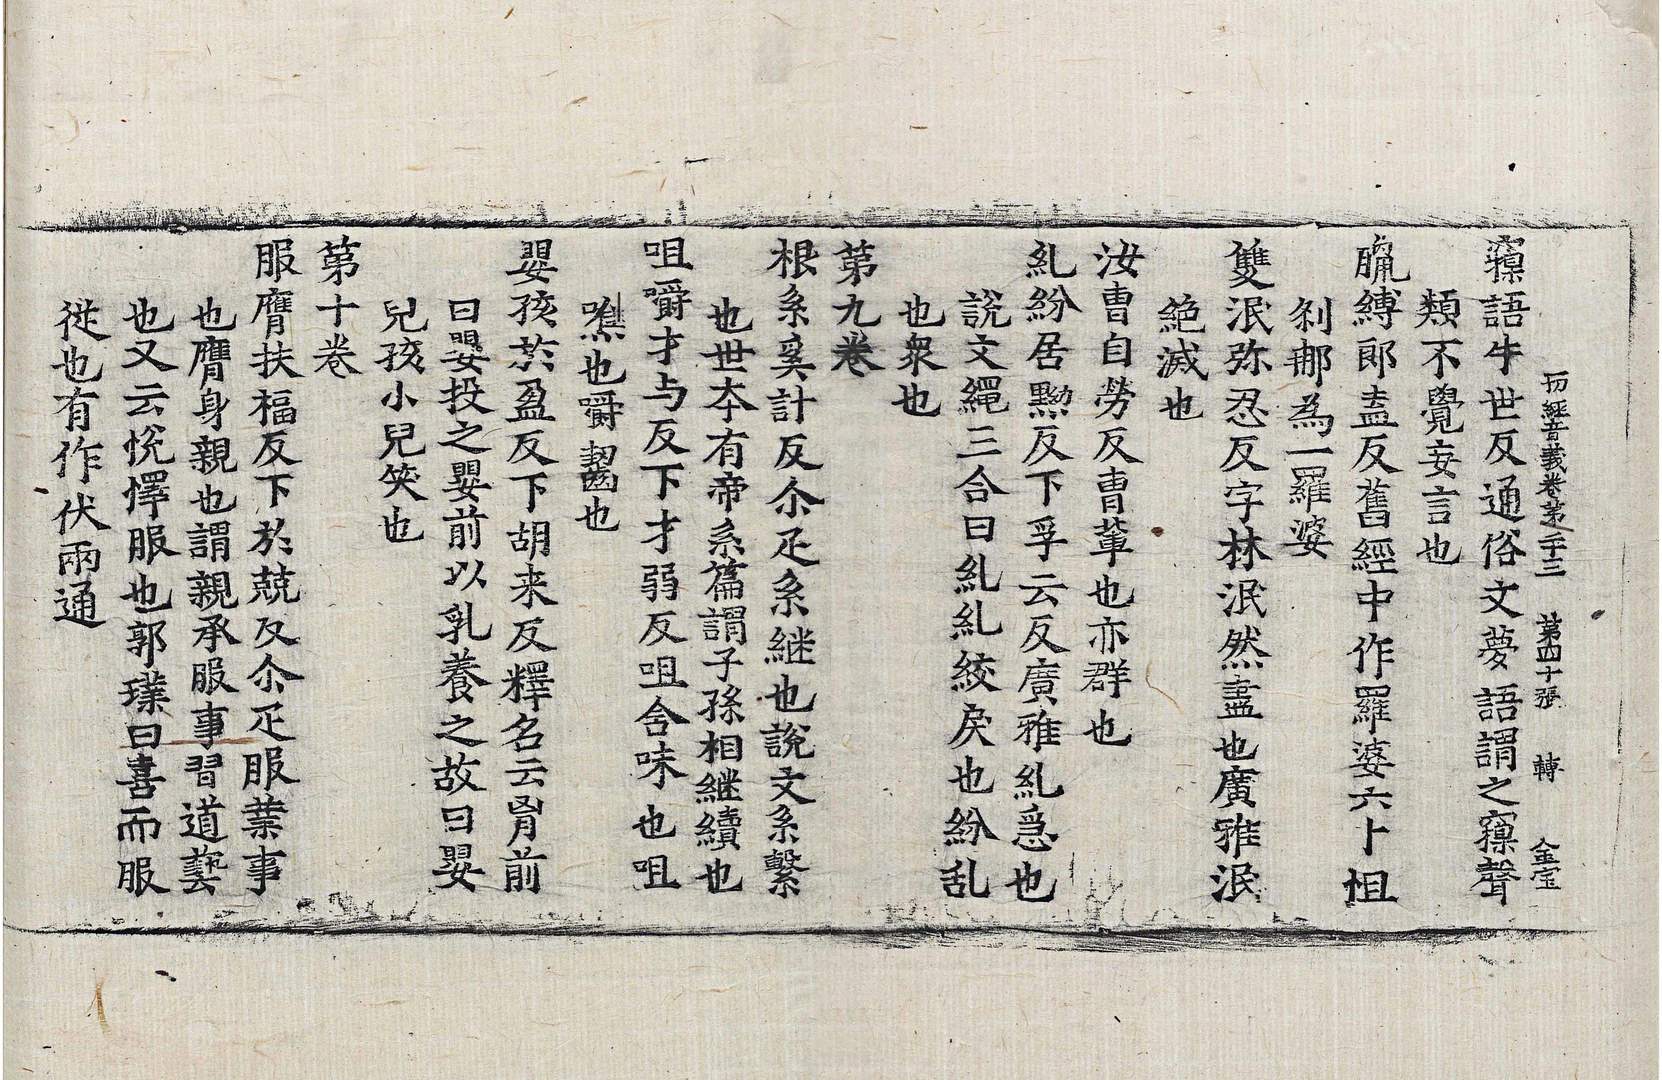 切經音義卷第二十三 第四十張 轉 金宝
寱語牛世反通俗文夢語謂之寱聲
類不覺妄言也
臗縛郎盍反舊經中作羅婆六十怛
刹那為一羅婆
雙泯弥忍反字林泯然盡也廣雅泯
絶滅也
汝曹自勞反曹軰也亦群也
糺紛居黝反下孚云反廣雅糺急也
說文繩三合曰糺糺絞戾也紛乱
也衆也
第九卷
根系奚計反尒疋系継也說文系繫
也世夲有帝系篇謂子孫相継續也
咀嚼才与反下才弱反咀含味也咀
噍也嚼齧也
嬰孩於盈反下胡来反釋名云𦙄前
曰嬰投之嬰前以乳養之故曰嬰
兒孩小兒笑也
第十卷
服膺扶福反下於兢反尒疋服業事
也膺身親也謂親承服事習道藝
也又云恱懌服也郭璞曰喜而服
從也有作伏兩通